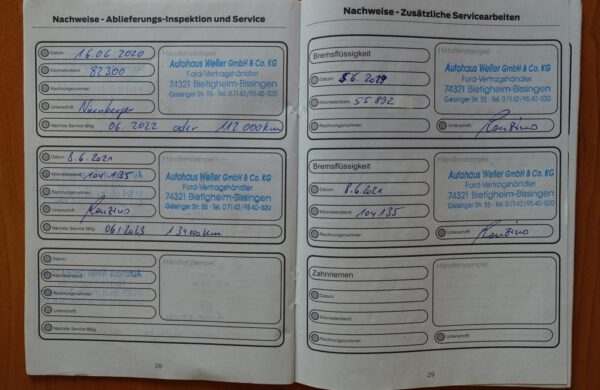 Nachweise - Ablieferungs-Inspektion und Service
Datum: 16.06.2020
Kilometerstand: 82300
Rechnungsnummer:
Unterschrift: Nürnberger
Nächste Service fällig: 06.2022 oder 112000km
Händlerstempel
Autohaus Weller GmbH & Co. KG
Ford-Vertragshändler
74321 Bietigheim-Bissingen
Geisinger Str. 55 - Tel. 07142/95 40-520
Datum: 8.6.2021
Kilometerstand: 104135
Rechnungsnummer:
Unterschrift:
Nächste Service fällig: 06/2023 134000km
Händlerstempel
Autohaus Weller GmbH & Co. KG
Ford-Vertragshändler
74321 Bietigheim-Bissingen
Geisinger Str. 55 - Tel. 07142/95 40-520
Datum:
Kilometerstand:
Rechnungsnummer:
Unterschrift:
Nächste Service fällig:
Händlerstempel
28
Nachweise - Zusätzliche Servicearbeiten
Bremsflüssigkeit
Datum: 6.2019
Kilometerstand: 55892
Rechnungsnummer:
Händlerstempel
Autohaus Weller GmbH & Co. KG
Ford-Vertragshändler
74321 Bietigheim-Bissingen
Geisinger Str. 55 - Tel. 07142/95 40-520
Unterschrift:
Bremsflüssigkeit
Datum: 8.6.2021
Kilometerstand: 104135
Rechnungsnummer:
Händlerstempel
Autohaus Weller GmbH & Co. KG
Ford-Vertragshändler
74321 Bietigheim-Bissingen
Geisinger Str. 55 - Tel. 07142/95 40-520
Unterschrift:
Zahnriemen
Datum:
Kilometerstand:
Rechnungsnummer:
Händlerstempel
Unterschrift:
29